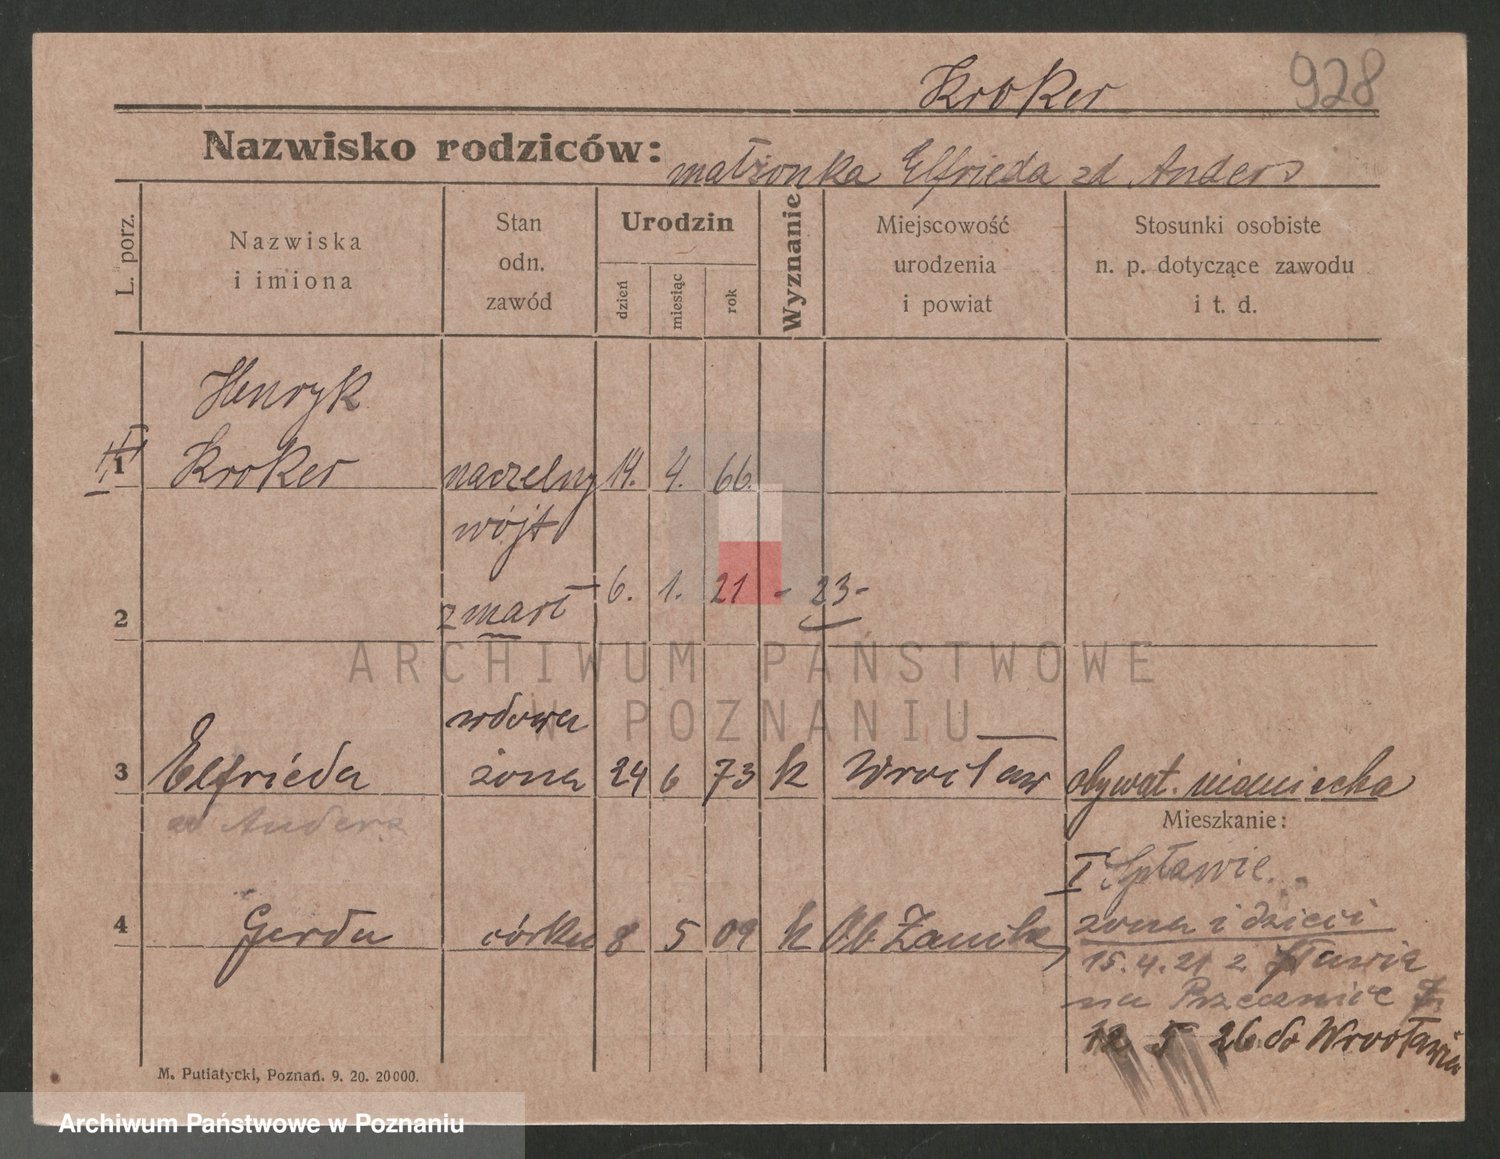 Kroker
928
Nazwisko rodziców: małżonka Elfrieda zd Anders
L. porz.
Nazwiska
i imiona
Stan
odn.
zawód
Urodzin
dzień
miesiąc
rok
Wyznanie
Miejscowość
urodzenia
i powiat
Stosunki osobiste
n. p. dotyczące zawodu
i t. d.
Henryk
1 Kroker naczelny 14. 4. 66.
wójt
2 zmarł 6. 1. 21 - 23-
ARCHIWUM PAŃSTWOWE
W POZNANIU
wdowa
3 Elfrieda żona 24 6 73 k Wrocław obywat. niemiecka
Anders
Mieszkanie:
I Spławie
4 Gerda córka 8 5 09 k
żona i dzieci
15.4.21 z
na
12 5 26 do Wrocławia
M. Putiatycki, Poznań. 9. 20. 20000.
Archiwum Państwowe w Poznaniu